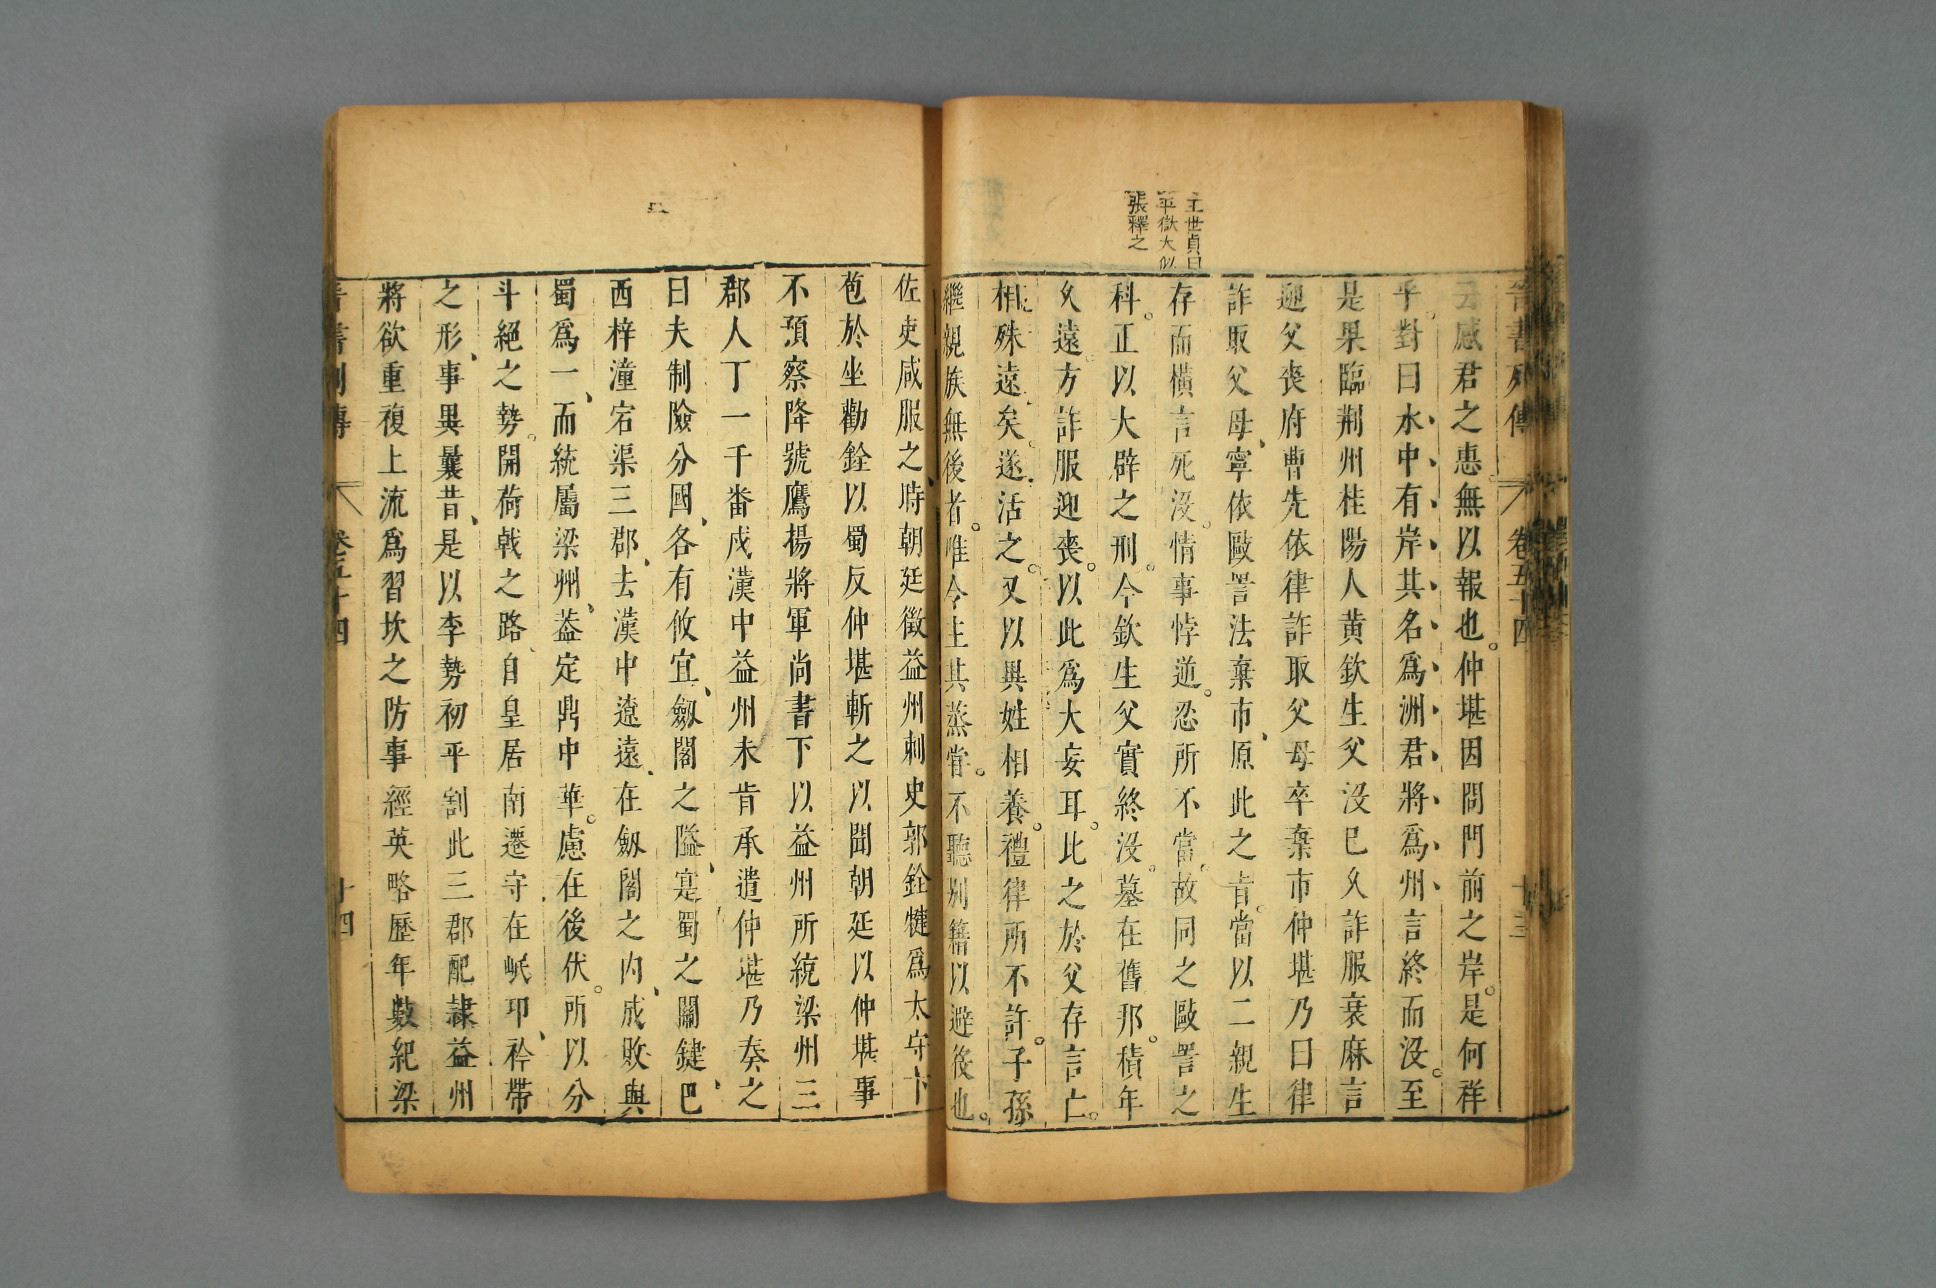 王世貞曰
平獄大似
張釋之
晉書列傳 卷五十四 十三
云感君之惠無以報也。仲堪因問門前之岸。是何祥
乎。對曰水中有岸其名爲洲君將爲州言終而沒。至
是果臨荆州桂陽人黃欽生父沒已久詐服衰麻言
迎父喪府曹先依律詐取父母卒棄市仲堪乃曰律
詐取父母、寧依敺詈法棄市、原此之旨。當以二親生
存而橫言死沒。情事悖逆。忍所不當。故同之敺詈之
科。正以大辟之刑。今欽生父實終沒。墓在舊邦。積年
久遠。方詐服迎喪。以此爲大妄耳。比之於父存言亡。
相殊遠矣。遂活之。又以異姓相養。禮律所不許。子孫
繼親族無後者。唯令主其蒸嘗。不聽別籍以避役也。
佐吏咸服之、時朝廷徵益州刺史郭銓犍爲太守卞
苞於坐勸銓以蜀反仲堪斬之以聞朝廷以仲堪事
不預察降號鷹揚將軍尚書下以益州所統梁州三
郡人丁一千番戍漢中益州未肯承遣仲堪乃奏之
曰夫制險分國、各有攸宜、劔閣之隘、寔蜀之關鍵、巴
西梓潼宕渠三郡、去漢中遼遠、在劔閣之内、成敗與
蜀爲一、而統屬梁州、葢定鼎中華。慮在後伏。所以分
斗絕之勢。開荷戟之路、自皇居南遷、守在岷卭、衿帶
之形、事異曩昔、是以李勢初平割此三郡配隷益州
將欲重複上流爲習坎之防事經英略歷年數紀梁
晉書列傳 卷五十四 十四